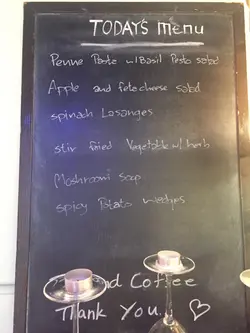 TODAY'S menu
Penne Paste w/Basil Pesto salad
Apple and feta cheese salad
spinach Lasanges
stir fried Vegetable w/herb
Mushroom Soup
spicy Potato wedges
nd Coffee
Thank You.. ♡